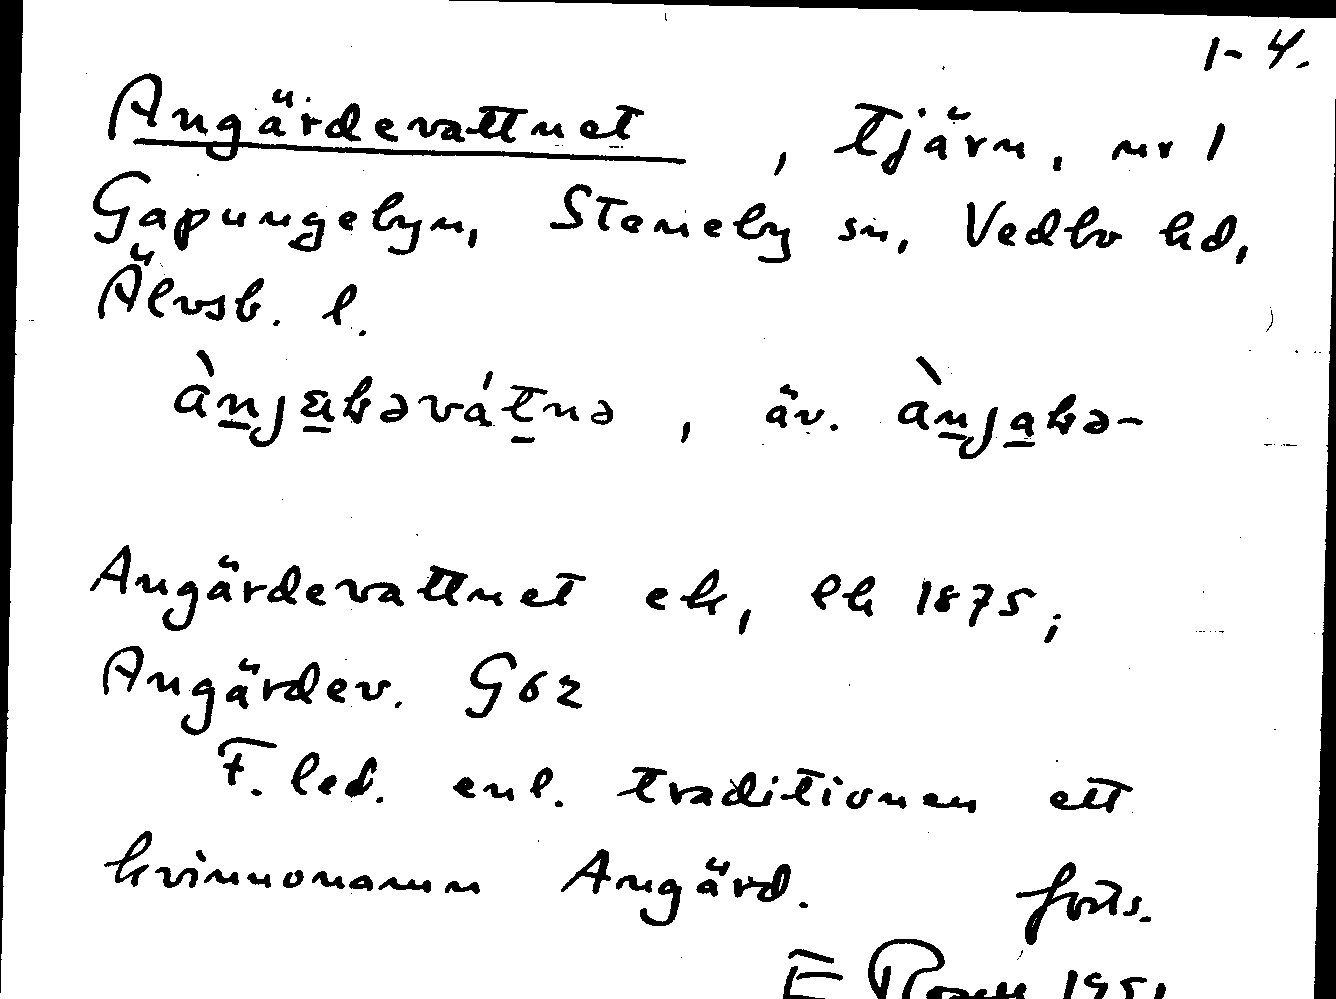 1-4.
Angärdevattnet, tjärn, nr 1
Gapungebyn, Steneby sn, Vedbo hd,
Älvsb. l.
äv.
Angärdevattnet ek, lk 1875;
Angärdev. G62
F. led. enl. traditionen ett
kvinnonamn Angärd. forts.
E Rosell 1951